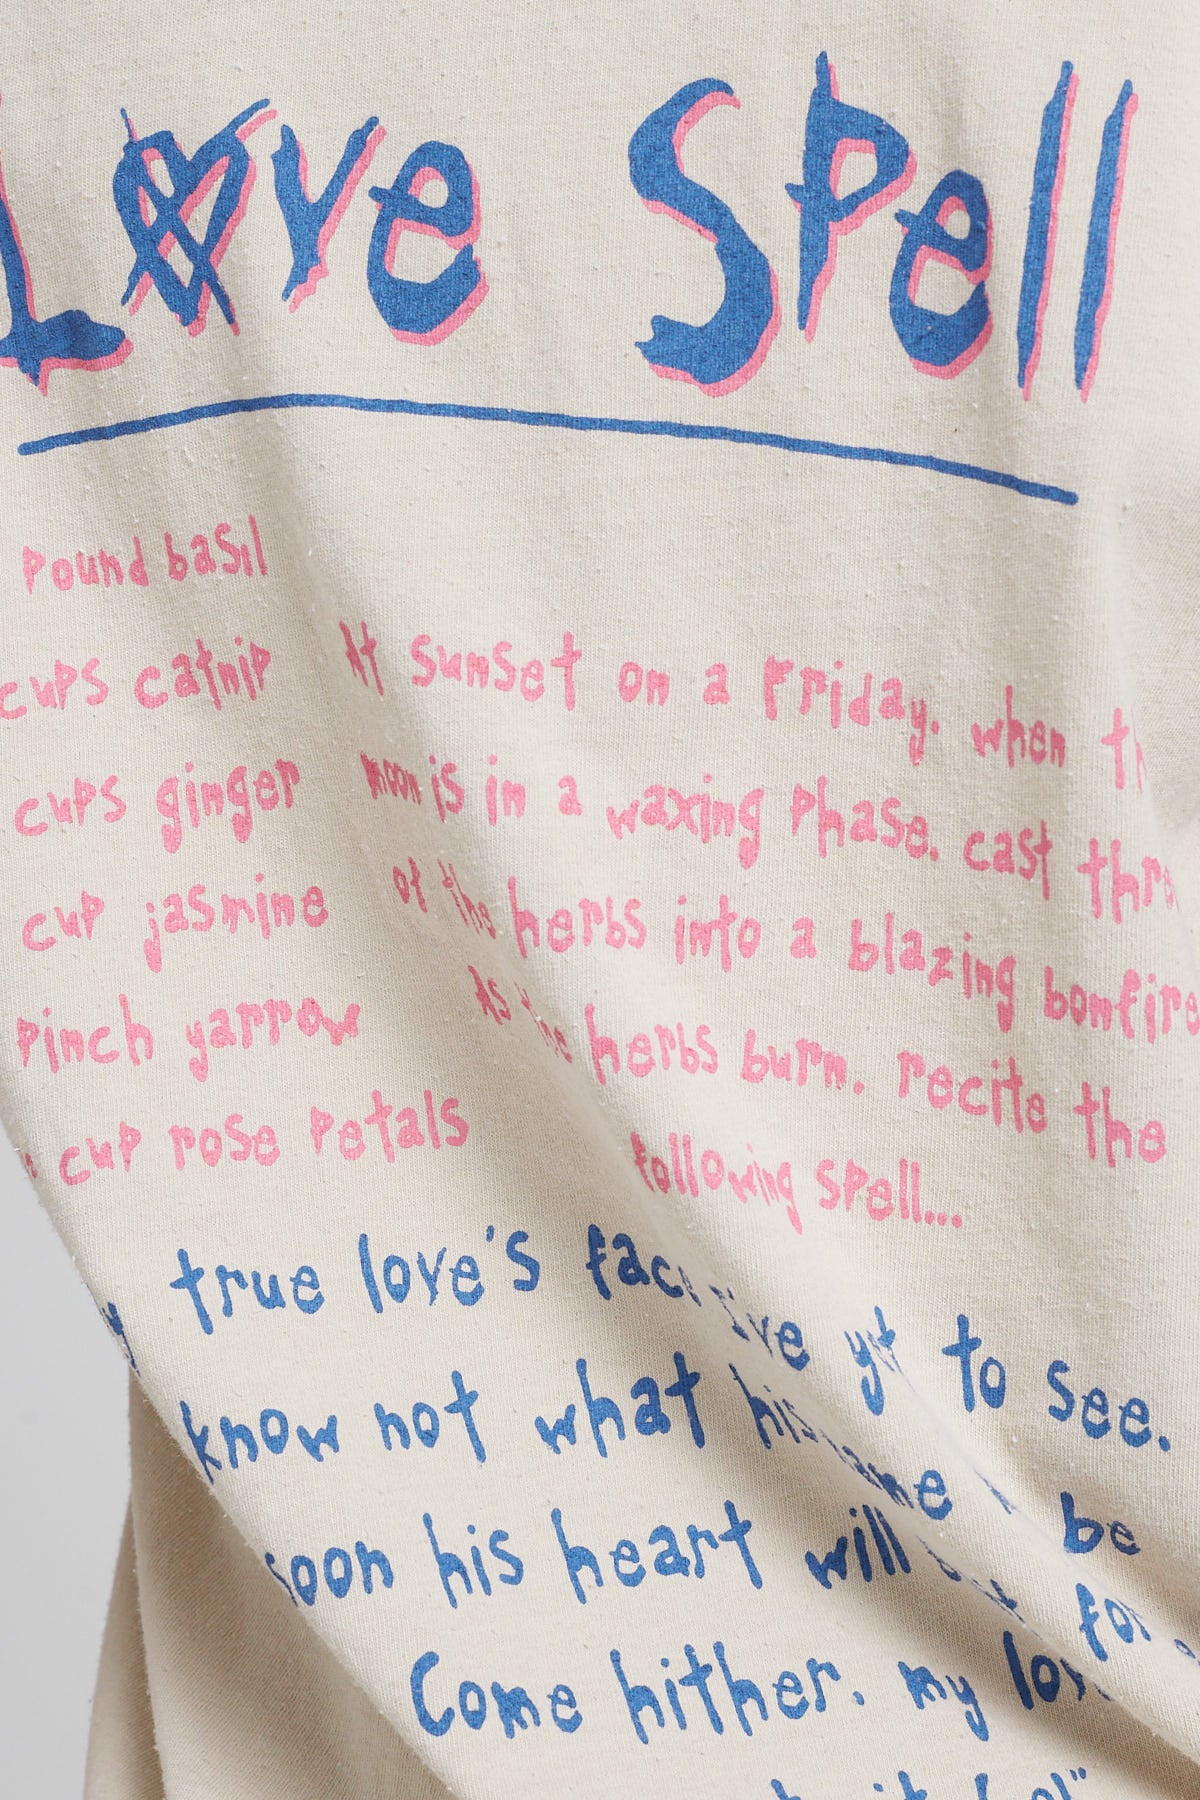 Love Spell
pound basil
cups catnip
cups ginger
cup jasmine
pinch yarrow
cup rose petals
At sunset on a Friday. when
moon is in a waxing phase. cast
of the herbs into a blazing bonfire
As the herbs burn. recite the
following spell...
true love's face I've yet to see.
know not what his name be
soon his heart will
Come hither. my